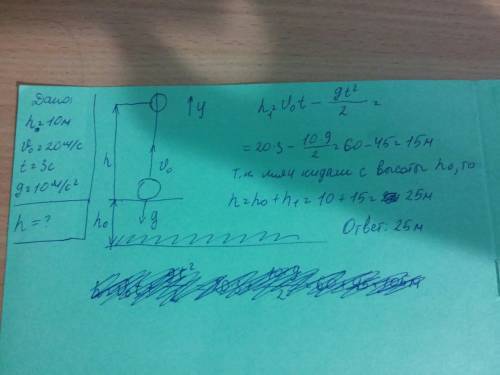 Дано:
h₀=10м
v₀=20м/с
t=3с
g=10м/с²
h=?
h
h₀
v₀
g
↑y
h₁=v₀t - gt²/2 =
=20·3 - 10·9/2 = 60-45=15м
т.к мяч кидали с высоты h₀, то
h=h₀+h₁=10+15= 25м
Ответ: 25м